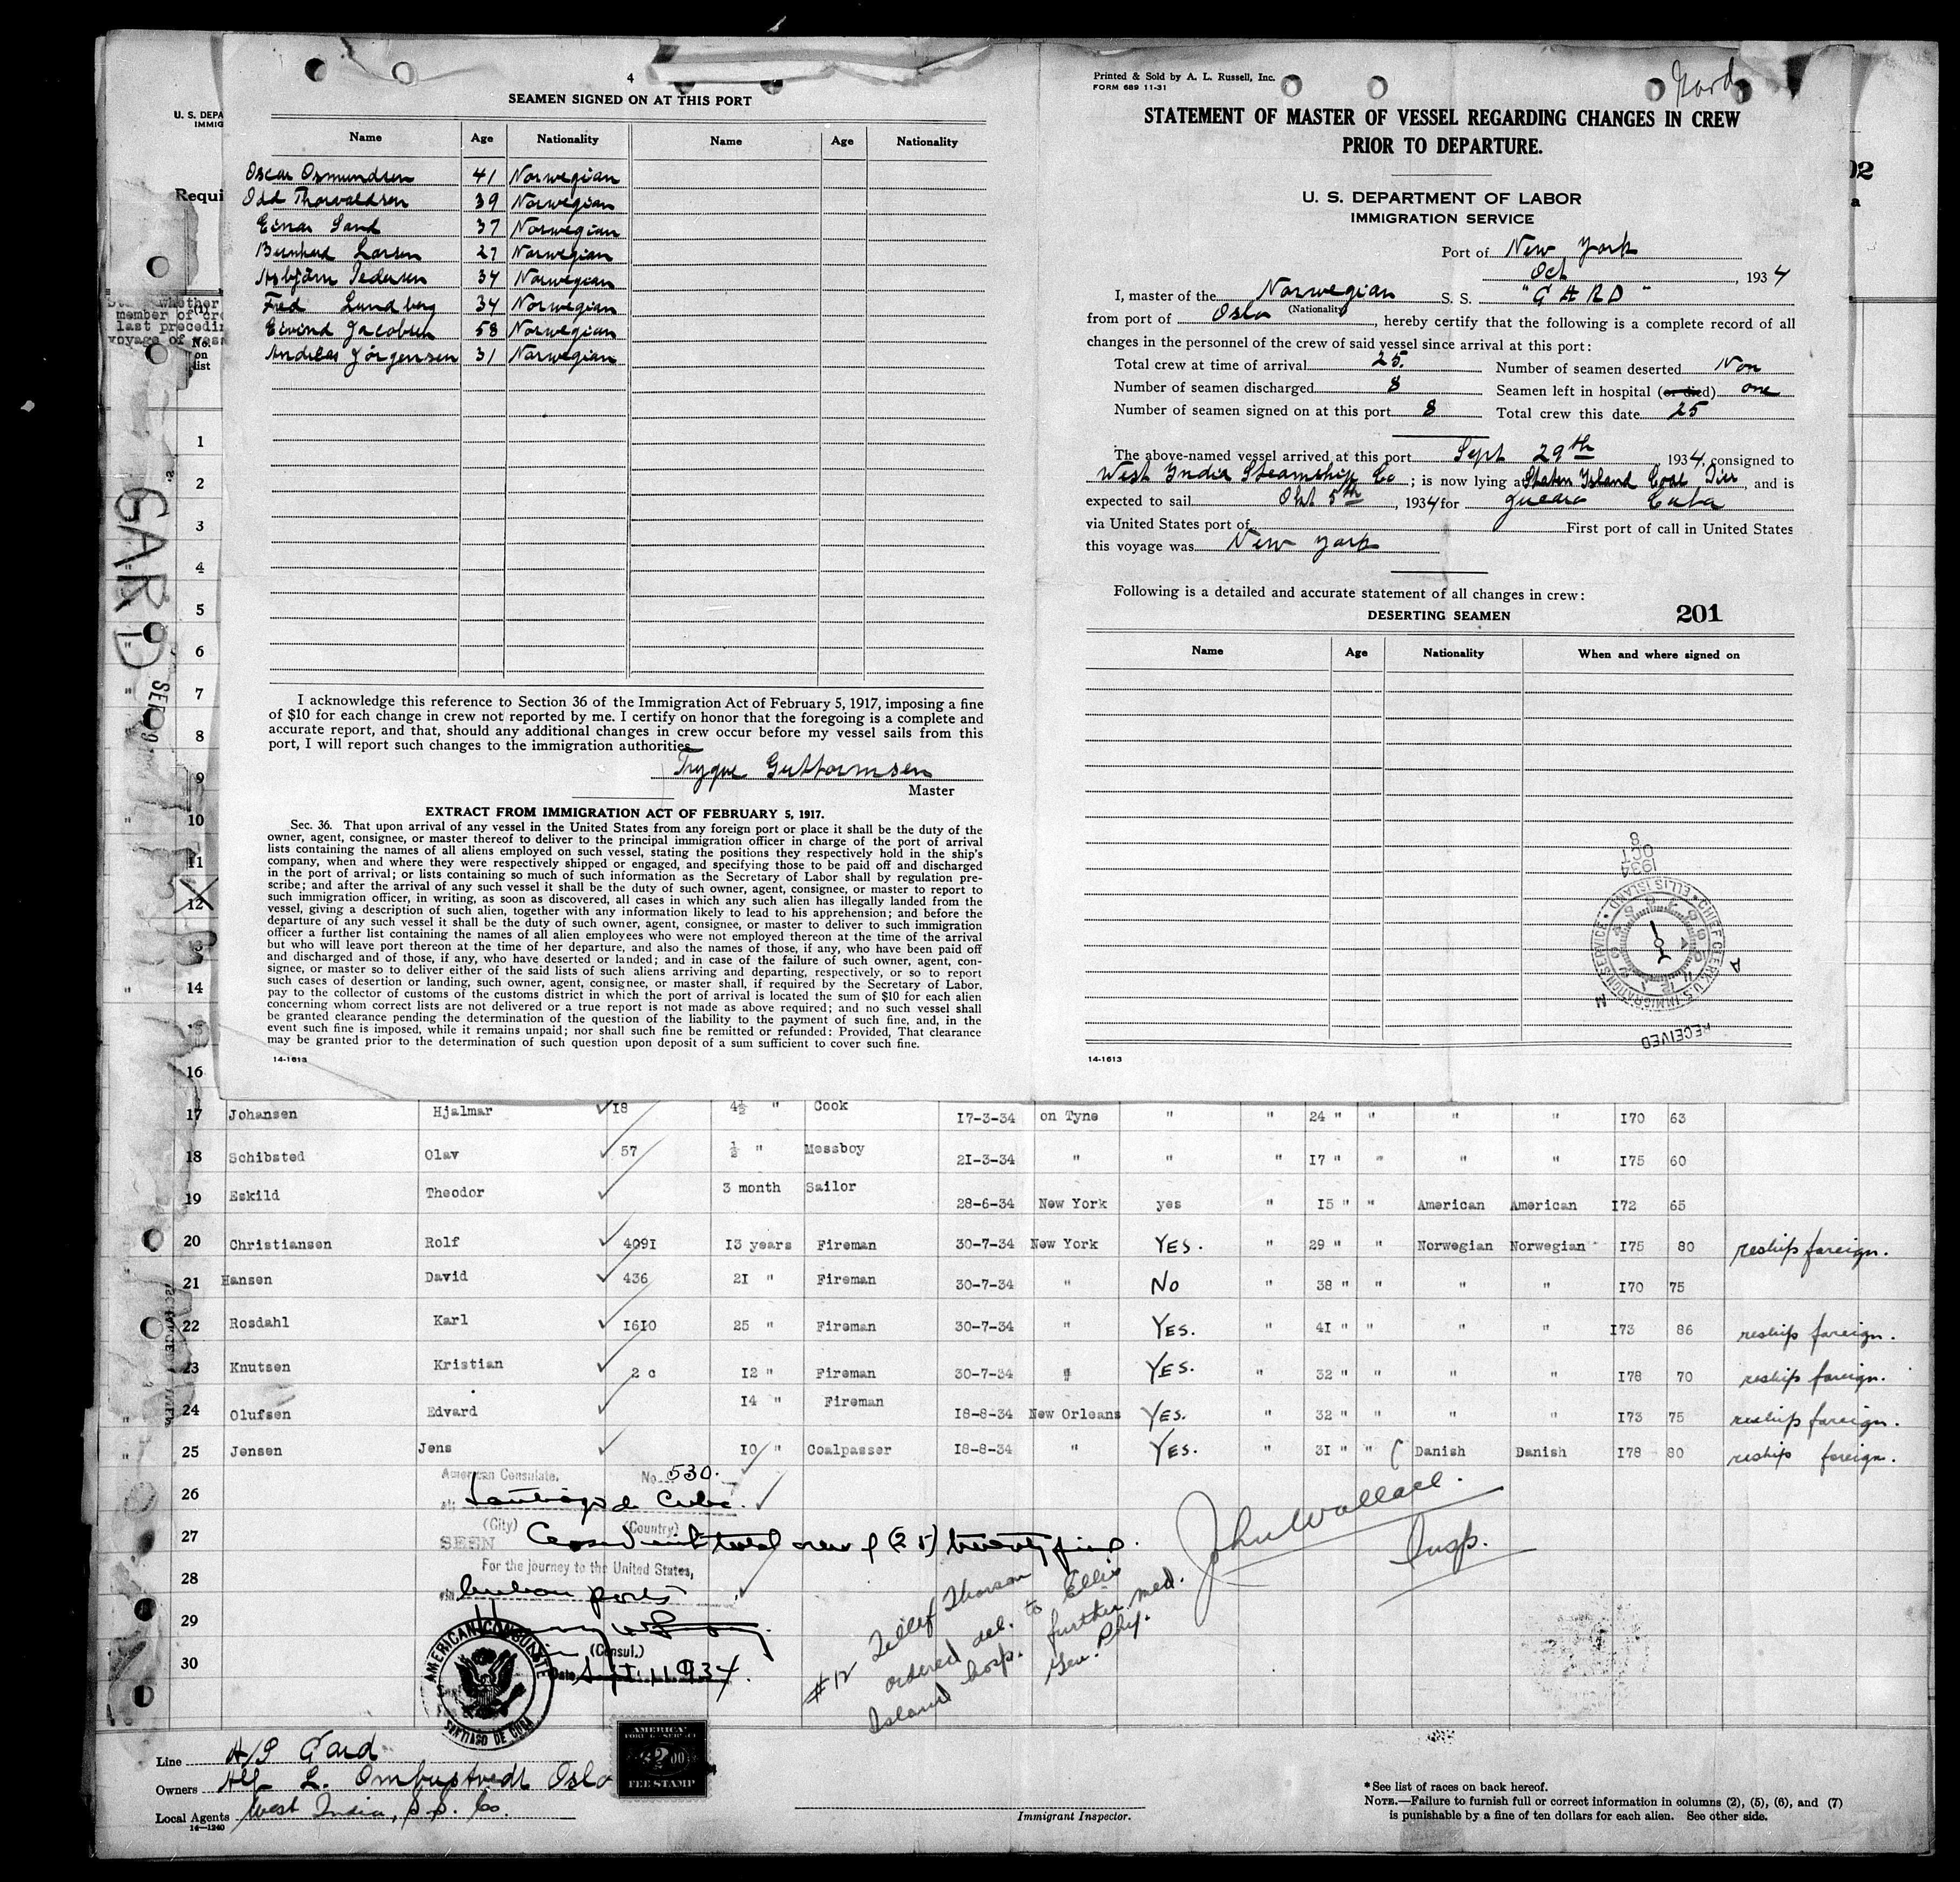 4
SEAMEN SIGNED ON AT THIS PORT
Name Age Nationality Name Age Nationality
Oscar Osmundsen 41 Norwegian
Odd Thorvaldsen 39 Norwegian
Einar Sand 37 Norwegian
Bernhard Larsen 27 Norwegian
Asbjörn Pedersen 34 Norwegian
Fred Lundberg 34 Norwegian
Eivind Jacobsen 58 Norwegian
Andreas Jörgensen 31 Norwegian
I acknowledge this reference to Section 36 of the Immigration Act of February 5, 1917, imposing a fine
of $10 for each change in crew not reported by me. I certify on honor that the foregoing is a complete and
accurate report, and that, should any additional changes in crew occur before my vessel sails from this
port, I will report such changes to the immigration authorities
Trygve Guttormsen
Master
EXTRACT FROM IMMIGRATION ACT OF FEBRUARY 5, 1917.
Sec. 36. That upon arrival of any vessel in the United States from any foreign port or place it shall be the duty of the
owner, agent, consignee, or master thereof to deliver to the principal immigration officer in charge of the port of arrival
lists containing the names of all aliens employed on such vessel, stating the positions they respectively hold in the ship's
company, when and where they were respectively shipped or engaged, and specifying those to be paid off and discharged
in the port of arrival; or lists containing so much of such information as the Secretary of Labor shall by regulation pre-
scribe; and after the arrival of any such vessel it shall be the duty of such owner, agent, consignee, or master to report to
such immigration officer, in writing, as soon as discovered, all cases in which any such alien has illegally landed from the
vessel, giving a description of such alien, together with any information likely to lead to his apprehension; and before the
departure of any such vessel it shall be the duty of such owner, agent, consignee, or master to deliver to such immigration
officer a further list containing the names of all alien employees who were not employed thereon at the time of the arrival
but who will leave port thereon at the time of her departure, and also the names of those, if any, who have been paid off
and discharged and of those, if any, who have deserted or landed; and in case of the failure of such owner, agent, con-
signee, or master so to deliver either of the said lists of such aliens arriving and departing, respectively, or so to report
such cases of desertion or landing, such owner, agent, consignee, or master shall, if required by the Secretary of Labor,
pay to the collector of customs of the customs district in which the port of arrival is located the sum of $10 for each alien
concerning whom correct lists are not delivered or a true report is not made as above required; and no such vessel shall
be granted clearance pending the determination of the question of the liability to the payment of such fine, and, in the
event such fine is imposed, while it remains unpaid; nor shall such fine be remitted or refunded; Provided, That clearance
may be granted prior to the determination of such question upon deposit of a sum sufficient to cover such fine.
14-1613
Printed & Sold by A. L. Russell, Inc.
FORM 689 11-31
Gard
STATEMENT OF MASTER OF VESSEL REGARDING CHANGES IN CREW
PRIOR TO DEPARTURE.
U. S. DEPARTMENT OF LABOR
IMMIGRATION SERVICE
Port of New York
Oct , 1934
I, master of the Norwegian S. S. "GARD"
(Nationality)
from port of Oslo , hereby certify that the following is a complete record of all
changes in the personnel of the crew of said vessel since arrival at this port:
Total crew at time of arrival 25. Number of seamen deserted Non
Number of seamen discharged 8 Seamen left in hospital (or died) one
Number of seamen signed on at this port 8 Total crew this date 25
The above-named vessel arrived at this port Sept 29th , 1934, consigned to
West India Steamship Co ; is now lying at Staten Island Coal Pier, and is
expected to sail Okt 5th , 1934 for Cuba
via United States port of First port of call in United States
this voyage was New York
Following is a detailed and accurate statement of all changes in crew:
DESERTING SEAMEN 201
Name Age Nationality When and where signed on
1934
OCT
8
CHIEF CLERK, U.S. IMMIGRATION SERVICE • ELLIS ISLAND
RECEIVED
14-1613
U. S. DEPA
IMMIG
Requi
02
a
whether
member of cre
last precedin
voyage of
No.
on
list
GARD
1
2
3
4
5
6
7
8
9
10
11
12
13
14
15
16
17 Johansen Hjalmar 18 4½ " Cook 17-3-34 on Tyne " " 24 " " " " 170 63
18 Schibsted Olav 57 ½ " Messboy 21-3-34 " " " 17 " " " " 175 60
19 Eskild Theodor 3 month Sailor 28-6-34 New York yes " 15 " " American American 172 65
20 Christiansen Rolf 4091 13 years Fireman 30-7-34 New York YES. " 29 " " Norwegian Norwegian 175 80 reship foreign.
21 Hansen David 436 21 " Fireman 30-7-34 " No " 38 " " " " 170 75
22 Rosdahl Karl 1610 25 " Fireman 30-7-34 " YES. " 41 " " " " 173 86 reship foreign.
23 Knutsen Kristian 2 c 12 " Fireman 30-7-34 " YES. " 32 " " " " 178 70 reship foreign.
24 Olufsen Edvard 14 " Fireman 18-8-34 New Orleans YES. " 32 " " " " 173 75 reship foreign.
25 Jensen Jens 10 " Coalpasser 18-8-34 " YES. " 31 " " Danish Danish 178 80 reship foreign.
26
27
28
29
30
American Consulate. No. 530.
at Santiago de Cuba.
(City) (Country)
SEEN total crew of (25) twenty five.
For the journey to the United States,
Cuban ports
(Consul.)
Date Sept. 11. 1934.
AMERICAN CONSULATE
SANTIAGO DE CUBA
AMERICA
FOREIGN SERVICE
$2.00
FEE STAMP
#12 Thorson
ordered del. to Ellis
Island hosp. further med.
Gen. Phy.
John Wallace.
Insp.
Line A/S Gard
Owners Alf L. Oslo
Local Agents West India, S.S. Co.
14-1240
Immigrant Inspector.
*See list of races on back hereof.
NOTE.—Failure to furnish full or correct information in columns (2), (5), (6), and (7)
is punishable by a fine of ten dollars for each alien. See other side.